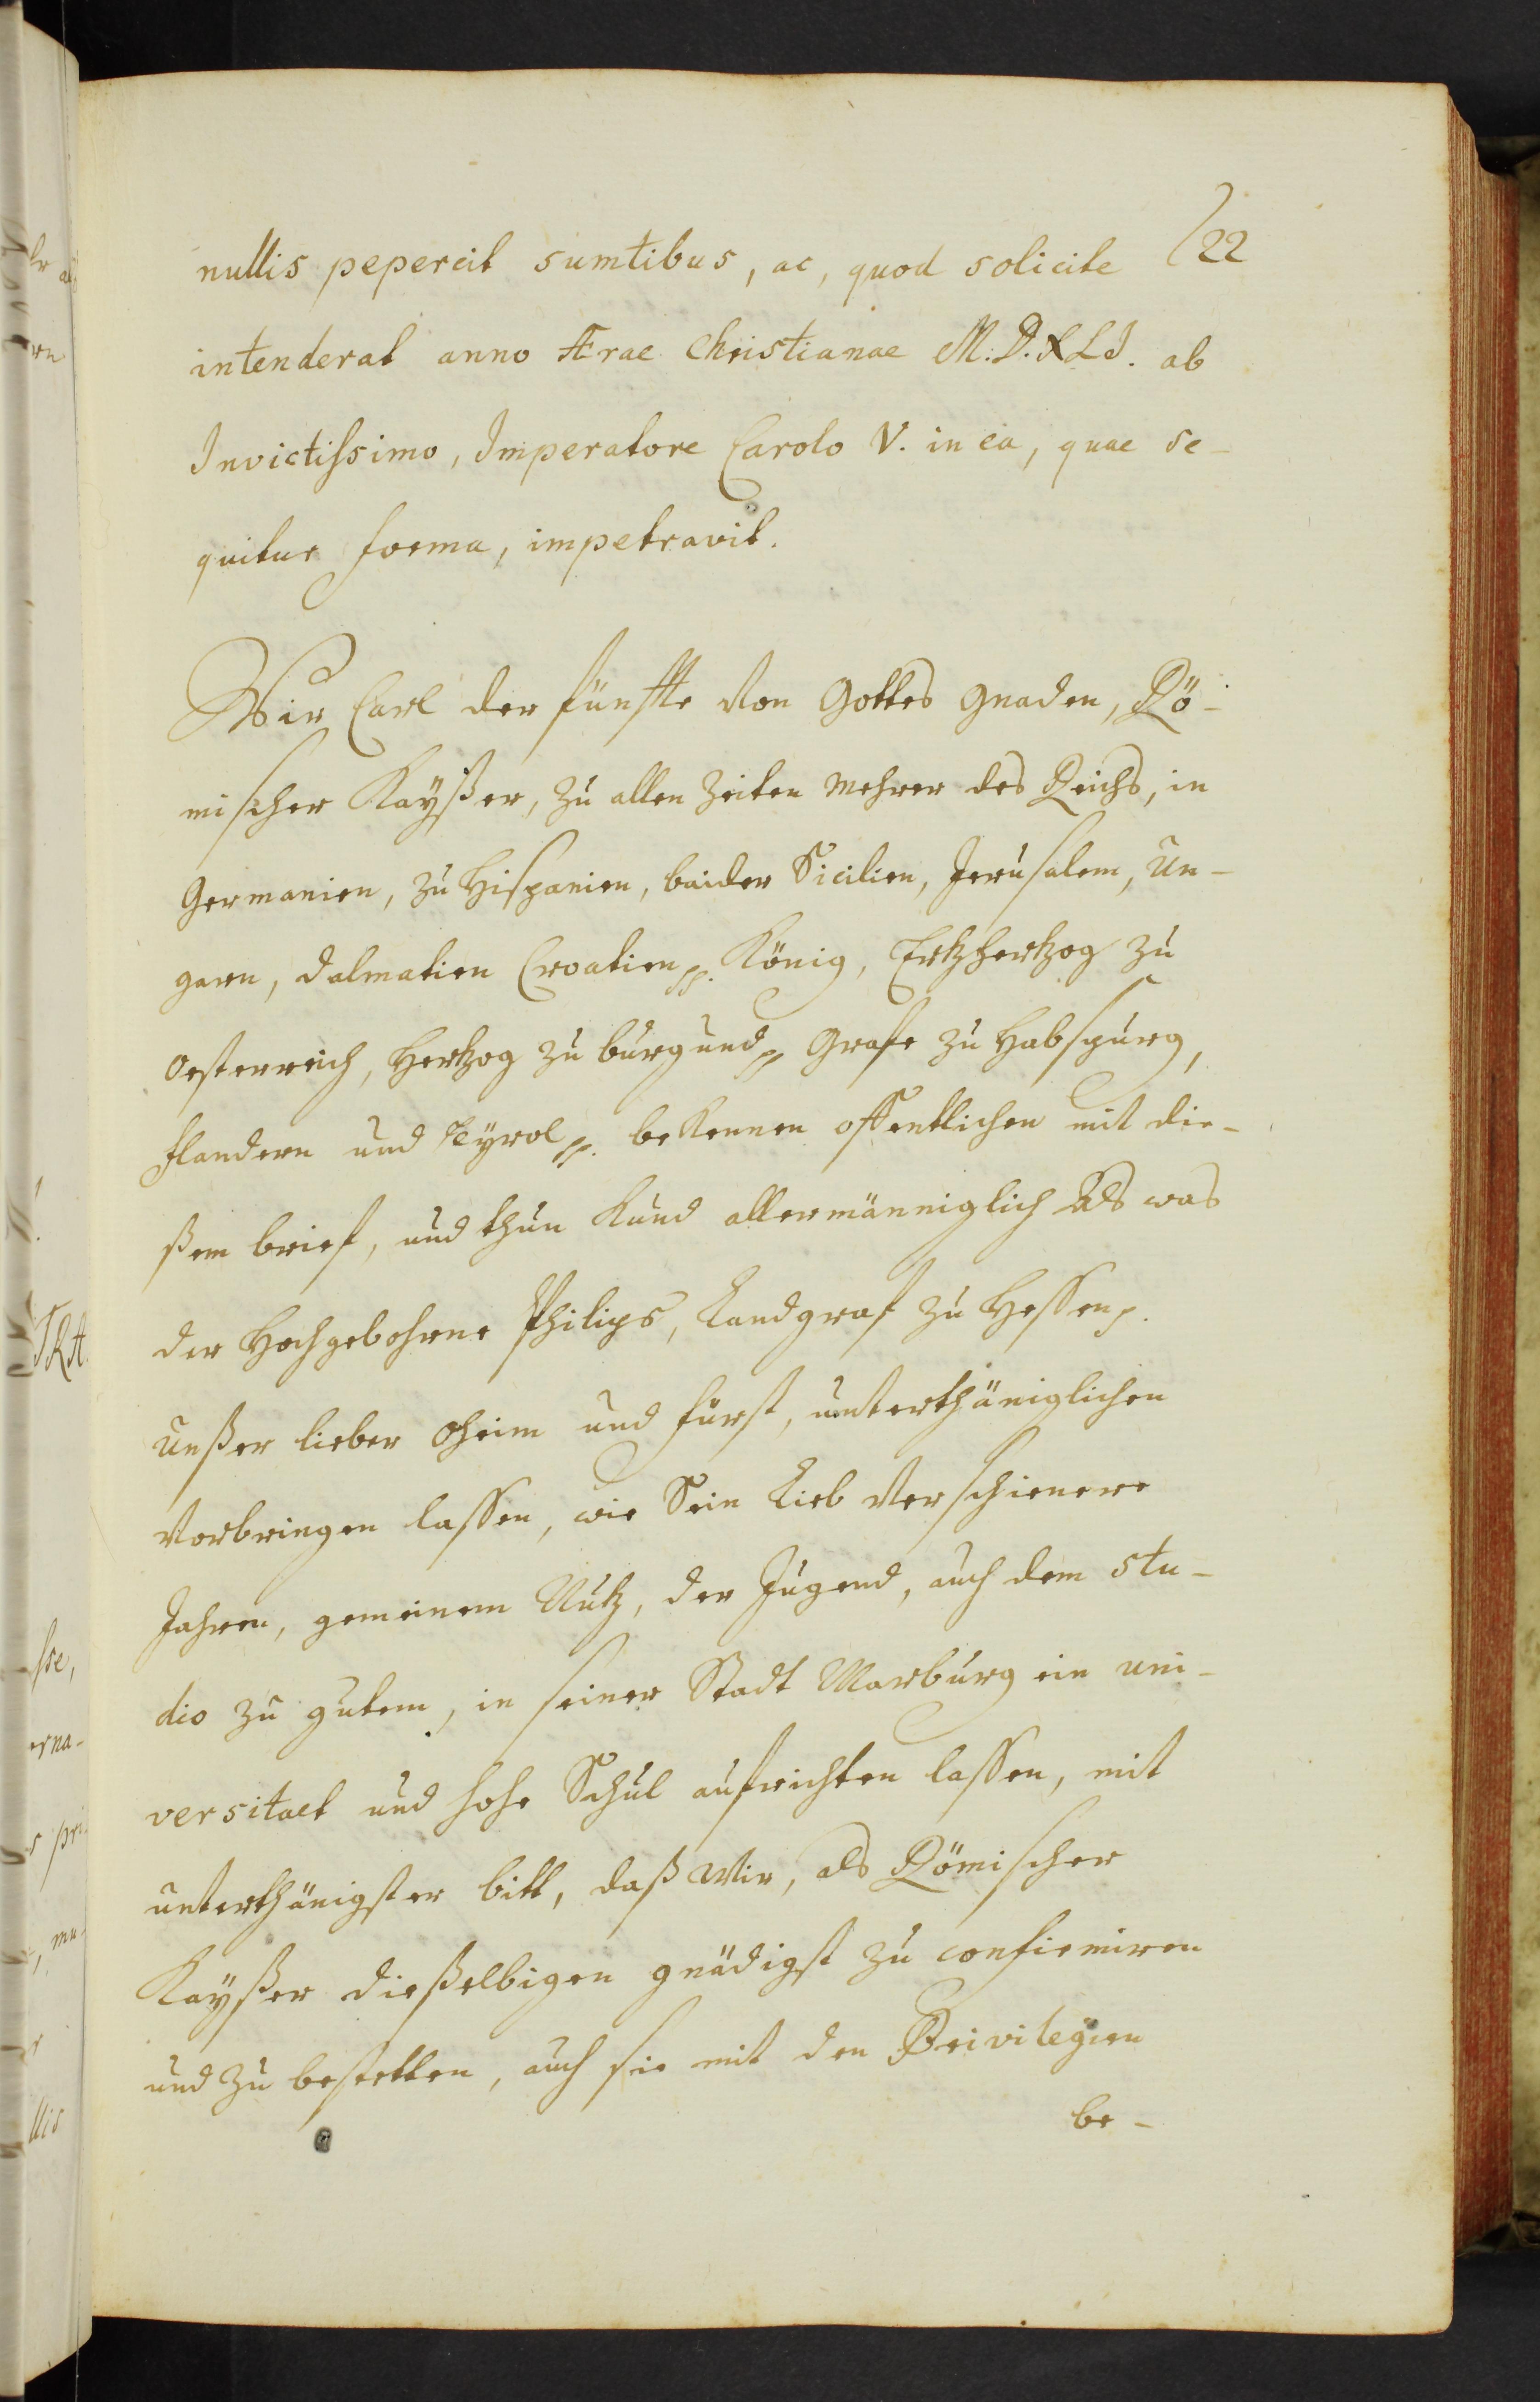 22
nullis pepercit sumtibus, ac, quod solicite
intenderat anno Ærae Christianae M.D.XLI. ab
Invictissimo, Imperatore Carolo V. in ea, quae se-
quitur forma, impetravit.
Wir Carl der fünfte von Gottes Gnaden, Rö-
mischer Kayßer, zu allen Zeiten Mehrer des Reichs, in
Germanien, zu Hispanien, baider Sicilien, Jerusalem, Un-
garn, Dalmatien Croatien pp. König, Ertzhertzog zu
Oesterreich, Hertzog zu burgund pp Grafe zu Habspurg,
flandern und Tÿrol pp. bekennen offentlichen mit die-
ßem brief, und thun kund allermänniglich Als was
der Hochgebohrne Philips, Landgraf zu Hessen p.
Unßer lieber Oheim und fürst, unterthäniglichen
vorbringen lassen, wie Sein Lieb verschienere
Jahren, gemeinem Nutz, der Jugend, auch dem stu-
dio zu gutem, in seiner Stadt Marburg ein uni-
versitaet und hohe Schul aufrichten lassen, mit
unterthänigster bitt, daß Wir, als Römischer
Kayßer dießelbigen gnädigst zu confirmiren
und zu bestetten, auch sie mit den Privilegien
be-